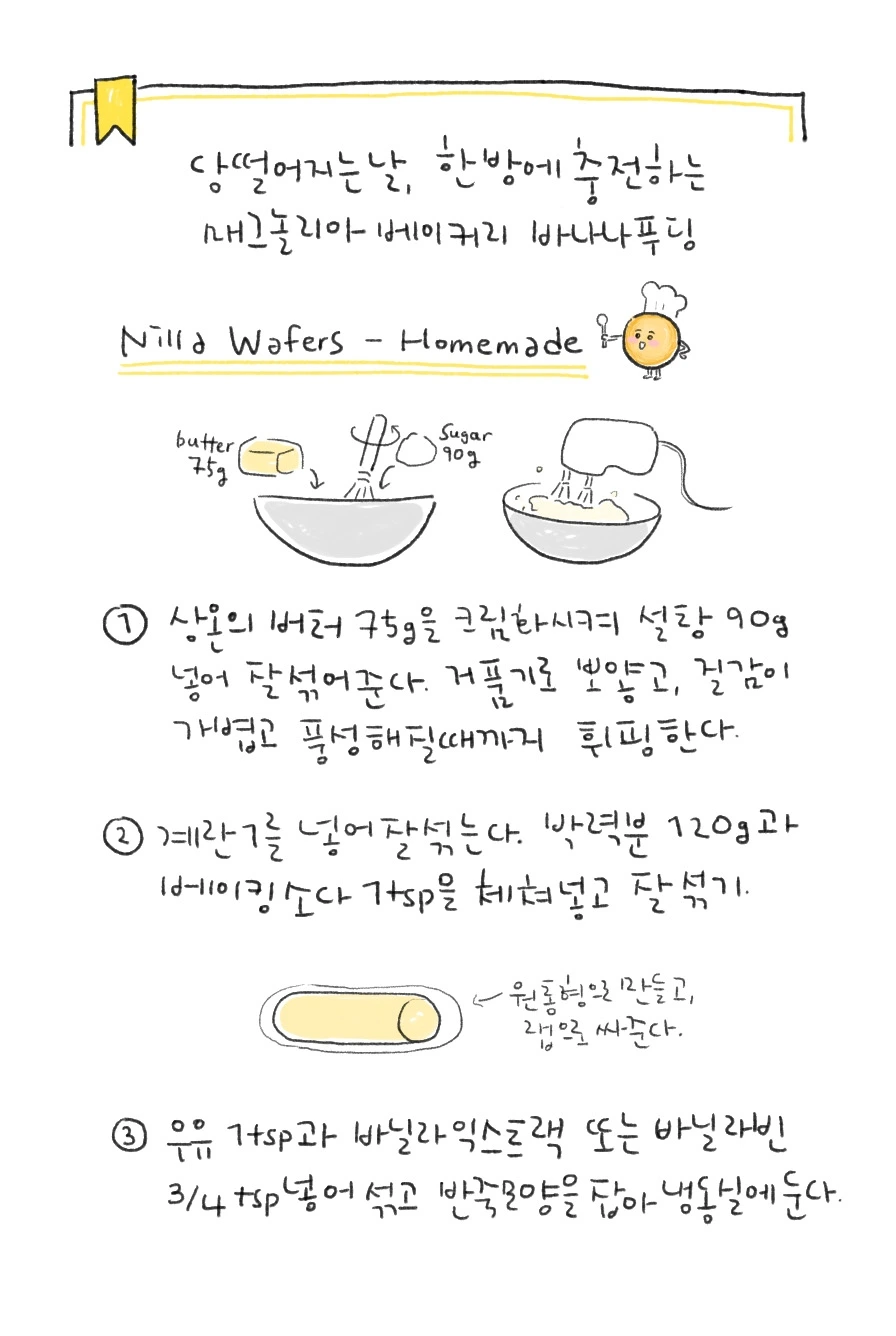 당떨어지는날, 한방에충전하는
매그놀리아베이커리 바나나푸딩
Nilla Wafers - Homemade
butter
75g
Sugar
90g
① 상온의 버터 75g을 크림화시켜 설탕 90g
넣어 잘섞어준다. 거품기로 뽀얗고, 질감이
가볍고 풍성해질때까지 휘핑한다.
② 계란1를 넣어잘섞는다. 박력분 120g과
베이킹소다 1tsp을 체쳐넣고 잘섞기.
원통형으로 만들고,
랩으로 싸준다.
③ 우유 1tsp과 바닐라익스트랙 또는 바닐라빈
3/4 tsp넣어 섞고 반죽모양을 잡아 냉동실에둔다.